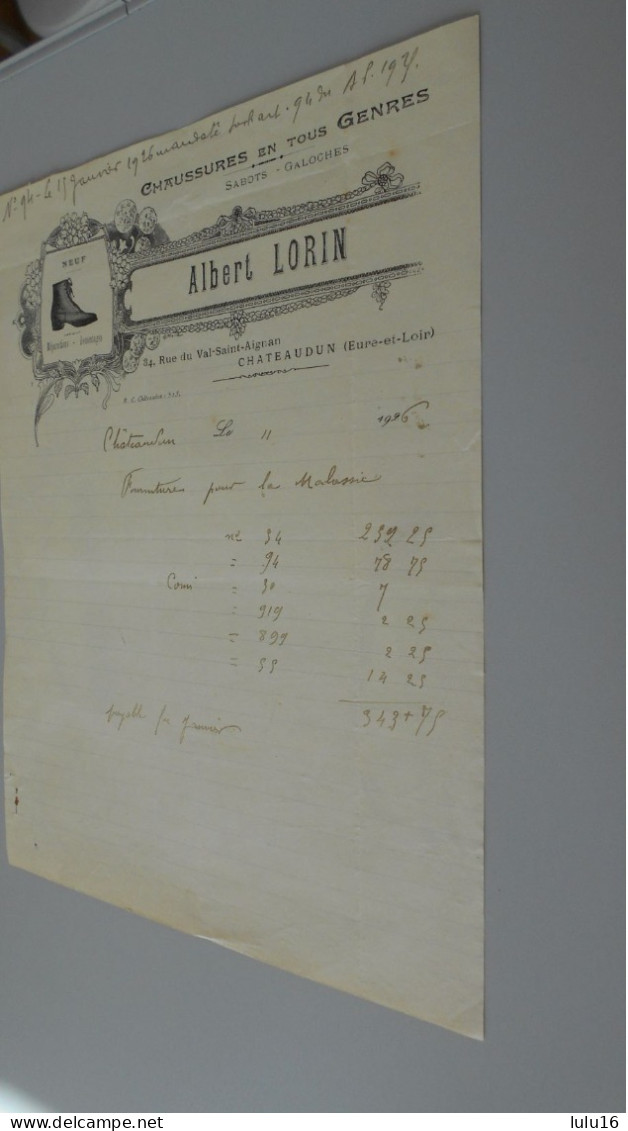 Nº 94 - le 17 Janvier 1926 mandaté art. 94 du 1925.
CHAUSSURES EN TOUS GENRES
SABOTS - GALOCHES
NEUF
Albert LORIN
34, Rue du Val-Saint-Aignan
CHATEAUDUN (Eure-et-Loir)
Châteaudun Le " 1926
Fournitures pour la Malassie
nº 34 239 25
= 94 78 75
= 30 7
= 919 2 25
= 899 2 25
= 55 14 25
343 + 75
payable fin janvier
lulu16